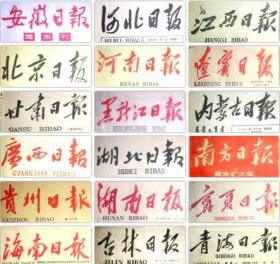 安徽日報
周末刊
河北日報
HEBEI RIBAO
江西日報
JIANGXI RIBAO
北京日報
河南日報
HENAN RIBAO
遼寧日報
LIAONING RIBAO
甘肃日報
GANSU RIBAO
黑龍江日報
内蒙古日報
廣西日報
GUANGXI RIBAO
湖北日報
HUBEI RIBAO
南方日報
周末扩大版
貴州日報
GUIZHOU RIBAO
湖南日報
HUNAN RIBAO
寧夏日報
NINGXIA RIBAO
海南日報
吉林日報
JILIN RIBAO
青海日報
QINGHAI RIBAO